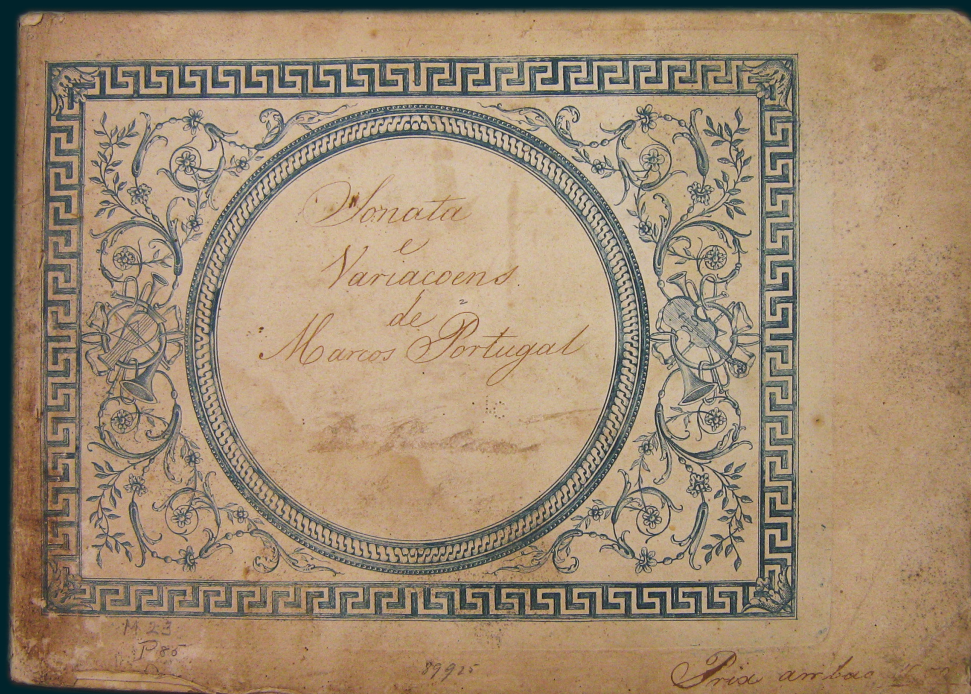 Sonata
e
Variacoens
de
Marcos Portugal
M 23
P 85
89925
Prix